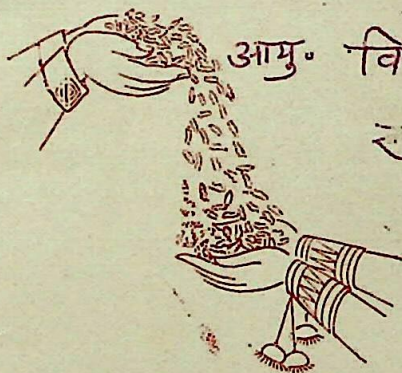 आयु. वि